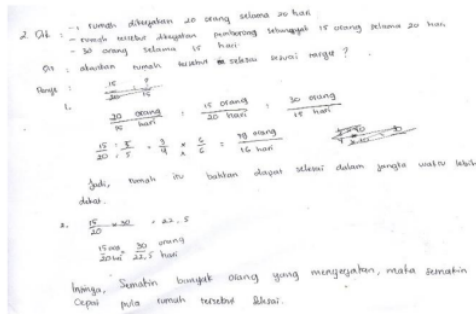 2. Dik : - 1 rumah dikerjakan 20 orang selama 20 hari
- rumah tersebut dikerjakan pemborong sebanyak 15 orang selama 20 hari
- 30 orang selama 15 hari.
Dit : akankah rumah tersebut selesai sesuai target ?
1.
20 orang / 15 hari : 15 orang / 20 hari : 30 orang / 15 hari
15/20 : 5/5 = 3/4 × 6/6 = 18 orang / 16 hari
Jadi, rumah itu bahkan dapat selesai dalam jangka waktu lebih
dekat.
2. 15/20 × 30 = 22,5
30 orang / 22,5 hari
Intinya, Semakin banyak orang yang mengerjakan, maka semakin
cepat pula rumah tersebut selesai.